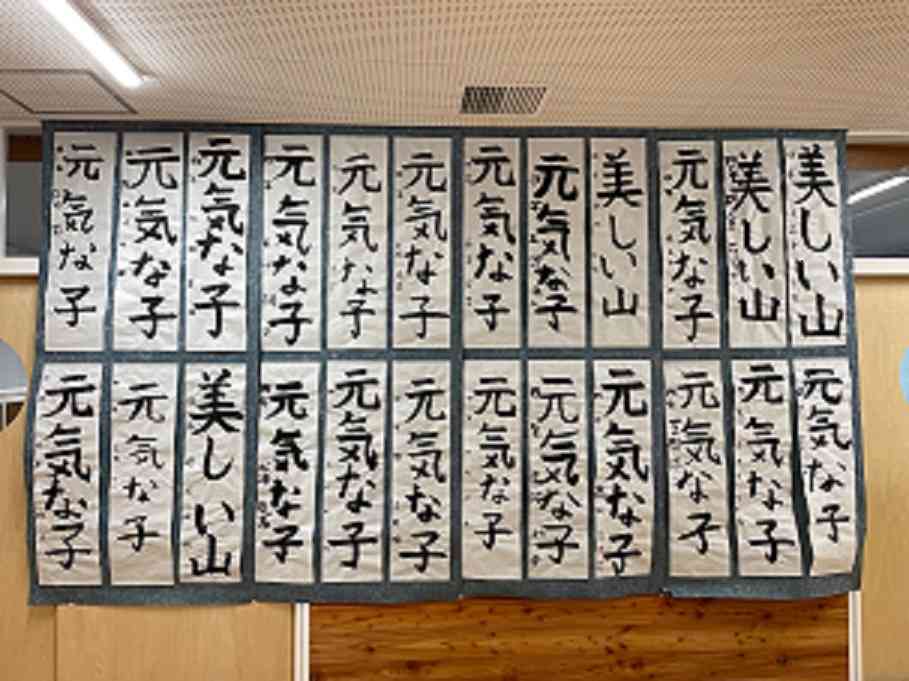 元気な子
元気な子
元気な子
元気な子
元気な子
元気な子
元気な子
元気な子
美しい山
元気な子
美しい山
美しい山
元気な子
元気な子
美しい山
元気な子
元気な子
元気な子
元気な子
元気な子
元気な子
元気な子
元気な子
元気な子